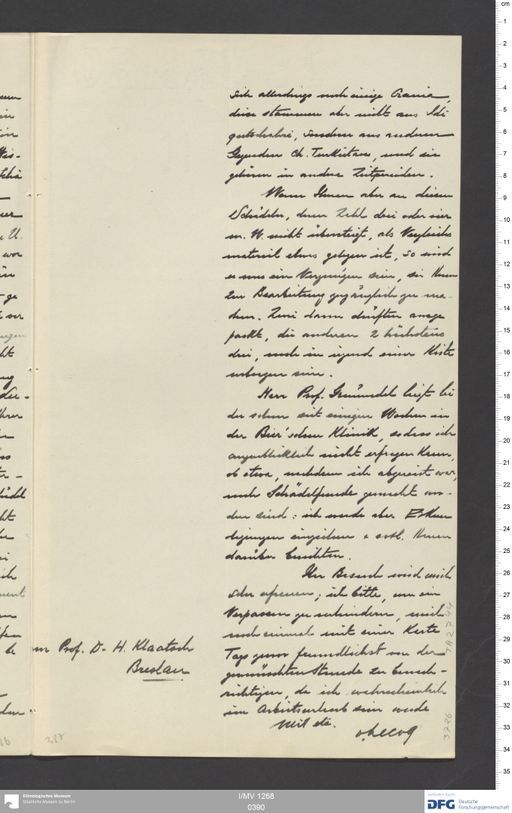 sich allerdings noch einige Crania,
diese stammen aber nicht aus Idi
qutschahri, sondern aus anderen
Gegenden Ch. Turkistans, und sie
gehören in andere Zeitperioden.
Wenn Ihnen aber an diesen
Schädeln, deren Zahl drei oder vier
m. W. nicht übersteigt, als Vergleichs
material etwas gelegen ist, so wird
es uns ein Vergnügen sein, sie Ihnen
zur Bearbeitung zugänglich zu ma-
chen. Zwei davon dürften ausge
packt, die anderen 2 höchstens
drei, noch in irgend einer Kiste
verborgen sein.
Herr Prof. Grünwedel liegt lei
der schon seit einigen Wochen in
der Bier'schen Klinik, sodass ich
augenblicklich nicht erfragen kann,
ob etwa, nachdem ich abgereist war,
noch Schädelfunde gemacht wor-
den sind: ich werde aber Erkun
digungen einziehen & evtl. Ihnen
darüber berichten.
Ihr Besuch wird mich
sehr erfreuen; ich bitte, um ein
Verpassen zu verhindern, mich
noch einmal mit einer Karte
Tags zuvor freundlichst von der
gewünschten Stunde zu benach-
richtigen, da ich wahrscheinlich
im Arbeitsurlaub sein werde
Mit etc.
v. Lecoq
Prof. Dr H. Klaatsch
Breslau
287
3226
Ethnologisches Museum
Staatliche Museen zu Berlin
I/MV 1268
0390
DFG
Deutsche
Forschungsgemeinschaft
cm
1
2
3
4
5
6
7
8
9
10
11
12
13
14
15
16
17
18
19
20
21
22
23
24
25
26
27
28
29
30
31
32
33
34
35